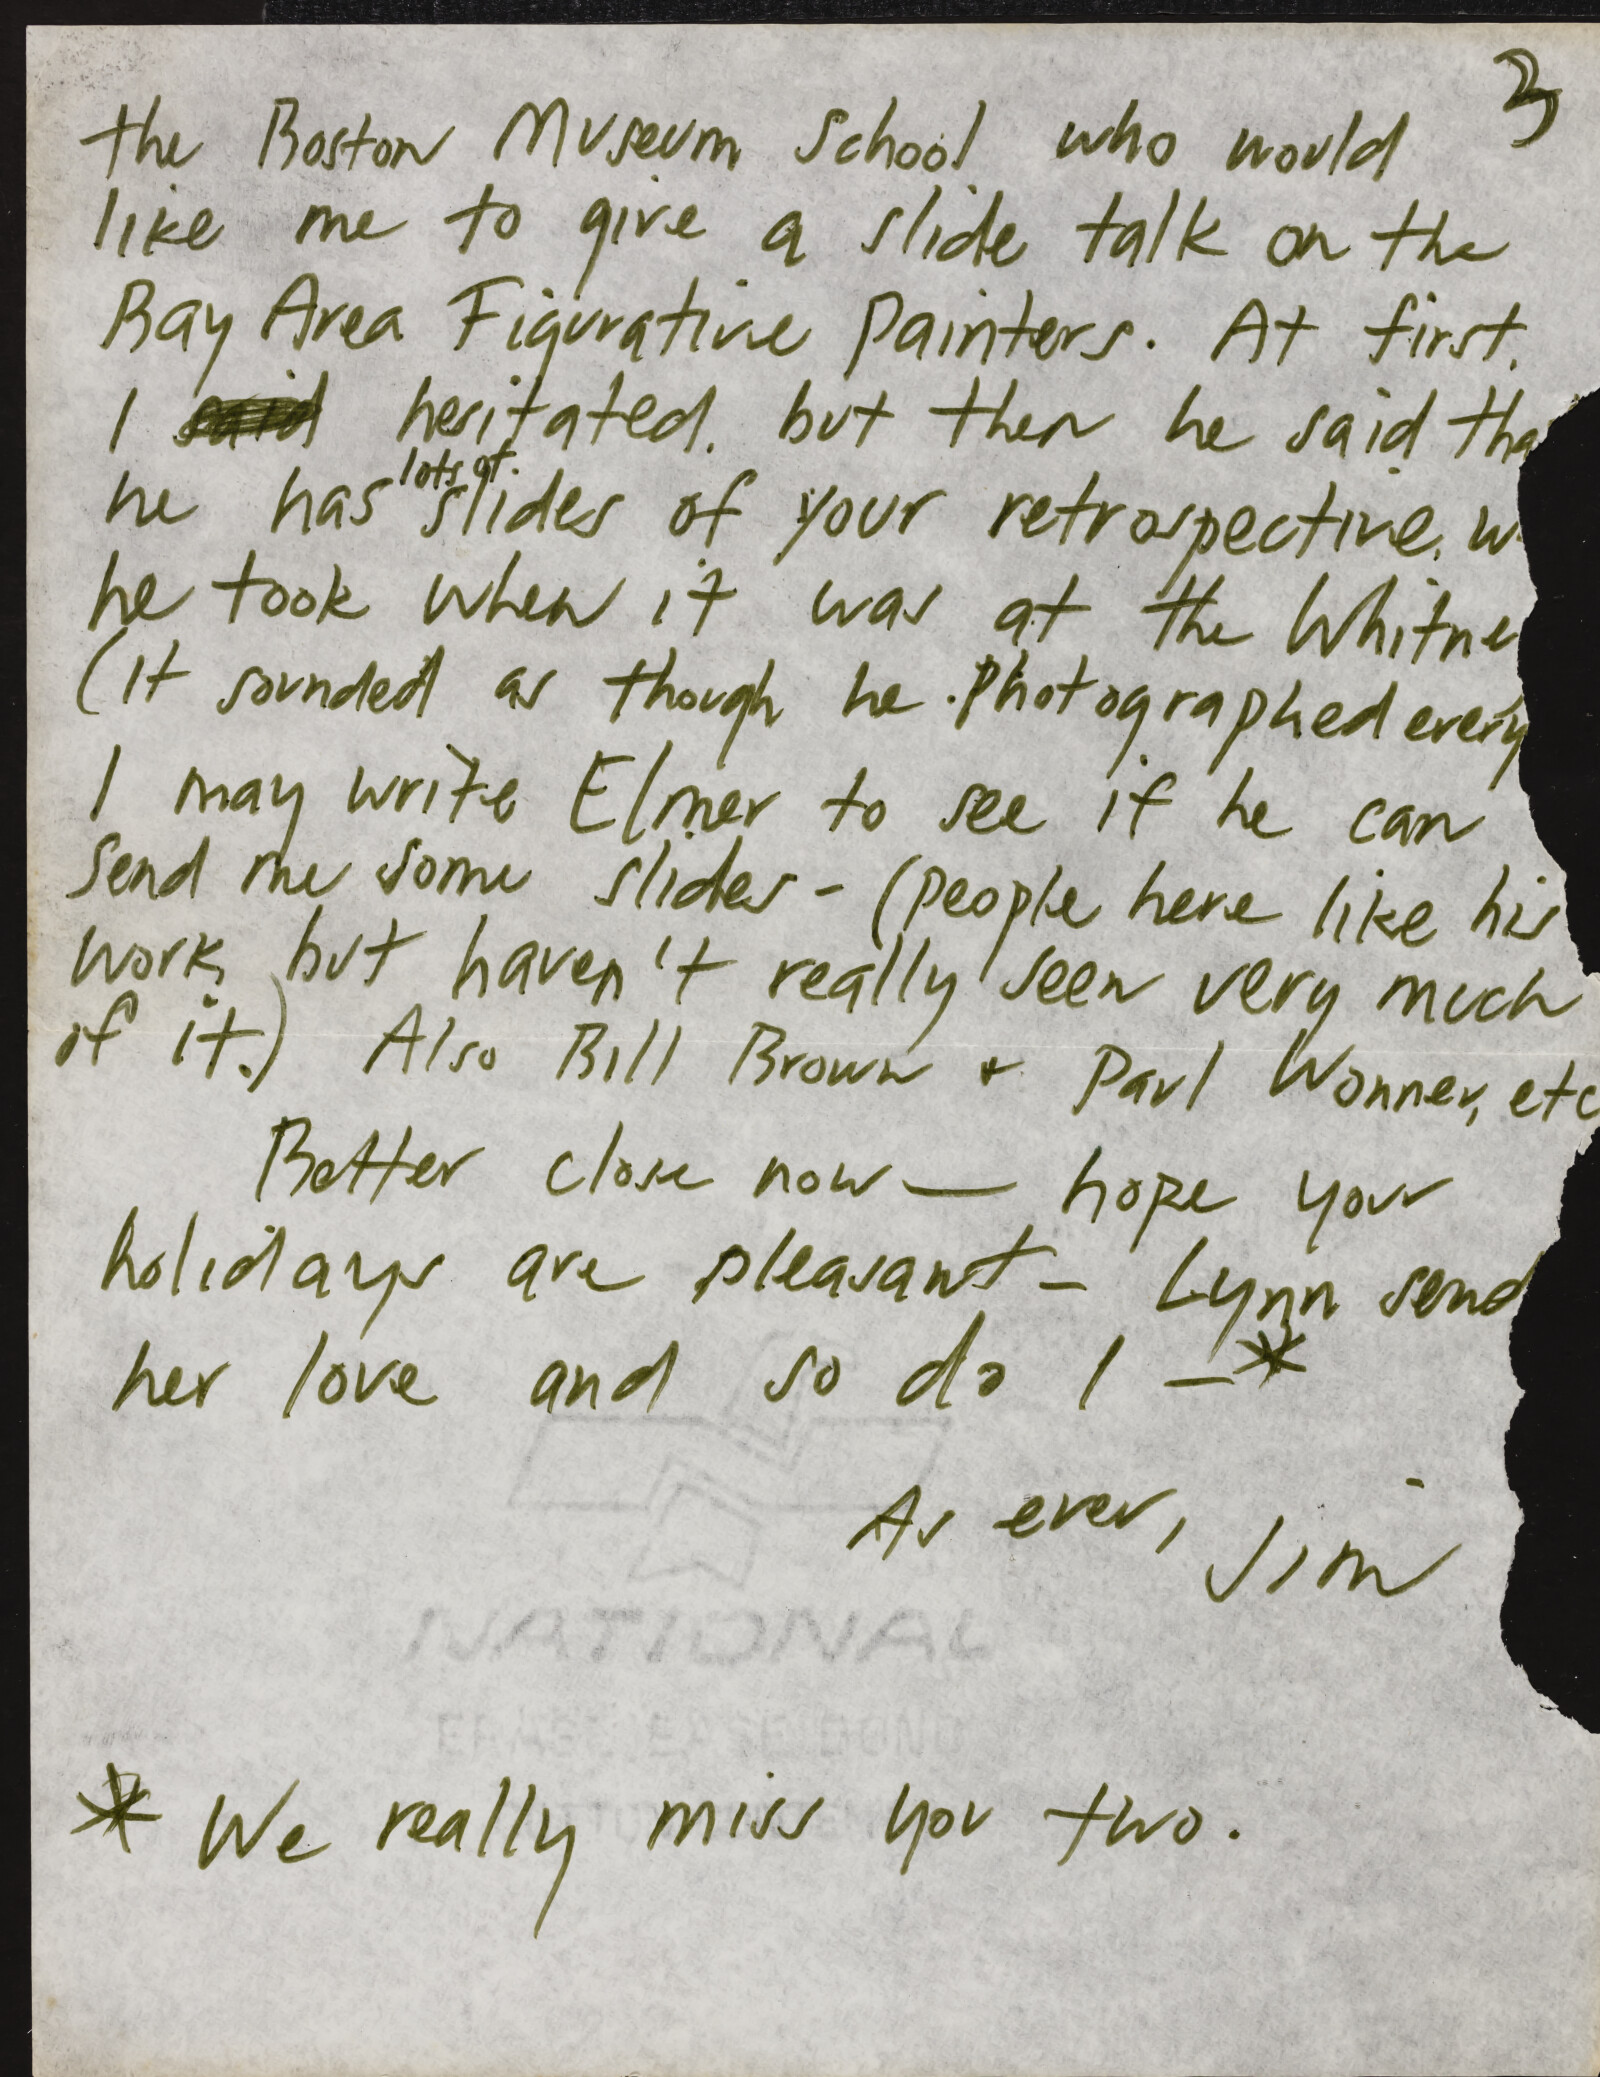 3
the Boston Museum School who would
like me to give a slide talk on the
Bay Area Figurative Painters. At first,
I said hesitated, but then he said tha
he has lots of slides of your retrospective, w
he took when it was at the Whitne
(it sounded as though he photographed every
I may write Elmer to see if he can
send me some slides - (people here like his
work, but haven't really seen very much
of it.) Also Bill Brown + Paul Wonner, etc
Better close now — hope your
holidays are pleasant - Lynn send
her love and so do I - *
As ever, Jim
JANOITAN
* We really miss you two.